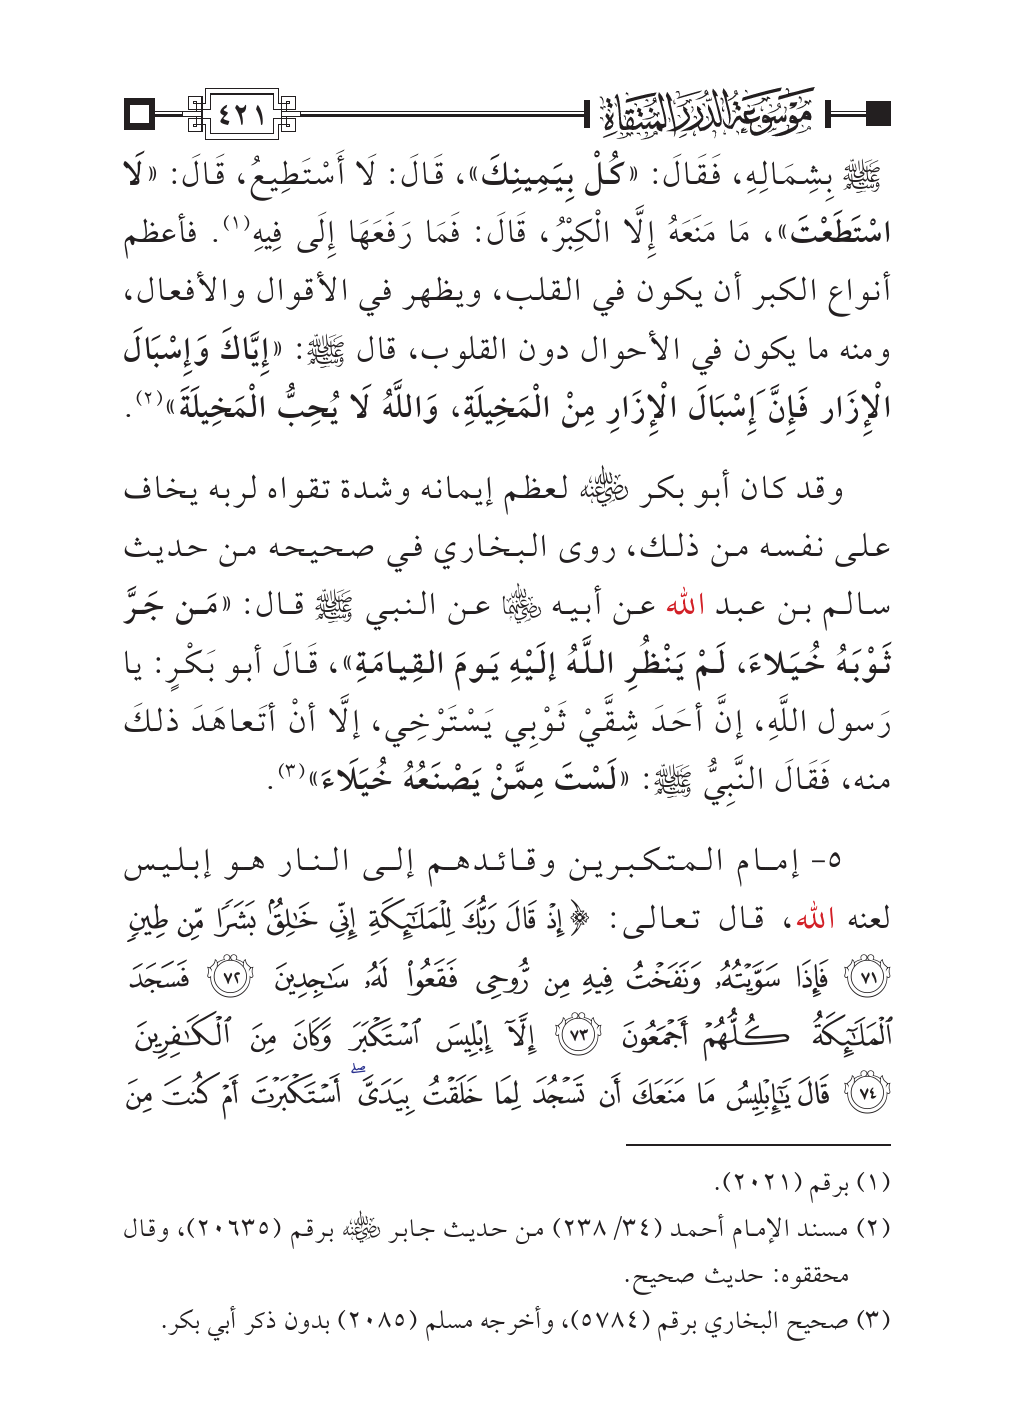 موسوعة الدرر المنتقاة
٤٢١
ﷺ بِشِمَالِهِ، فَقَالَ: «كُلْ بِيَمِينِكَ»، قَالَ: لَا أَسْتَطِيعُ، قَالَ: «لَا
اسْتَطَعْتَ»، مَا مَنَعَهُ إِلَّا الْكِبْرُ، قَالَ: فَمَا رَفَعَهَا إِلَى فِيهِ(١). فأعظم
أنواع الكبر أن يكون في القلب، ويظهر في الأقوال والأفعال،
ومنه ما يكون في الأحوال دون القلوب، قال ﷺ: «إِيَّاكَ وَإِسْبَالَ
الْإِزَارِ فَإِنَّ َإِسْبَالَ الْإِزَارِ مِنْ الْمَخِيلَةِ، وَاللَّهُ لَا يُحِبُّ الْمَخِيلَةَ»(٢).
وقد كان أبو بكر رضي الله عنه لعظم إيمانه وشدة تقواه لربه يخاف
على نفسه من ذلك، روى البخاري في صحيحه من حديث
سالم بن عبد الله عن أبيه رضي الله عنهما عن النبي ﷺ قال: «مَن جَرَّ
ثَوْبَهُ خُيَلاءَ، لَمْ يَنْظُرِ اللَّهُ إلَيْهِ يَومَ القِيامَةِ»، قَالَ أبو بَكْرٍ: يا
رَسول اللَّهِ، إنَّ أحَدَ شِقَّيْ ثَوْبِي يَسْتَرْخِي، إلَّا أنْ أتَعاهَدَ ذلكَ
منه، فَقَالَ النَّبِيُّ ﷺ: «لَسْتَ مِمَّنْ يَصْنَعُهُ خُيَلَاءَ»(٣).
٥- إمام المتكبرين وقائدهم إلى النار هو إبليس
لعنه الله، قال تعالى: ﴿إِذْ قَالَ رَبُّكَ لِلْمَلَٰٓئِكَةِ إِنِّى خَٰلِقٌۢ بَشَرًا مِّن طِينٍ
٧١ فَإِذَا سَوَّيْتُهُۥ وَنَفَخْتُ فِيهِ مِن رُّوحِى فَقَعُوا۟ لَهُۥ سَٰجِدِينَ ٧٢ فَسَجَدَ
ٱلْمَلَٰٓئِكَةُ كُلُّهُمْ أَجْمَعُونَ ٧٣ إِلَّآ إِبْلِيسَ ٱسْتَكْبَرَ وَكَانَ مِنَ ٱلْكَٰفِرِينَ
٧٤ قَالَ يَٰٓإِبْلِيسُ مَا مَنَعَكَ أَن تَسْجُدَ لِمَا خَلَقْتُ بِيَدَىَّ ۖ أَسْتَكْبَرْتَ أَمْ كُنتَ مِنَ
(١) برقم (٢٠٢١).
(٢) مسند الإمام أحمد (٣٤/ ٢٣٨) من حديث جابر رضي الله عنه برقم (٢٠٦٣٥)، وقال
محققوه: حديث صحيح.
(٣) صحيح البخاري برقم (٥٧٨٤)، وأخرجه مسلم (٢٠٨٥) بدون ذكر أبي بكر.